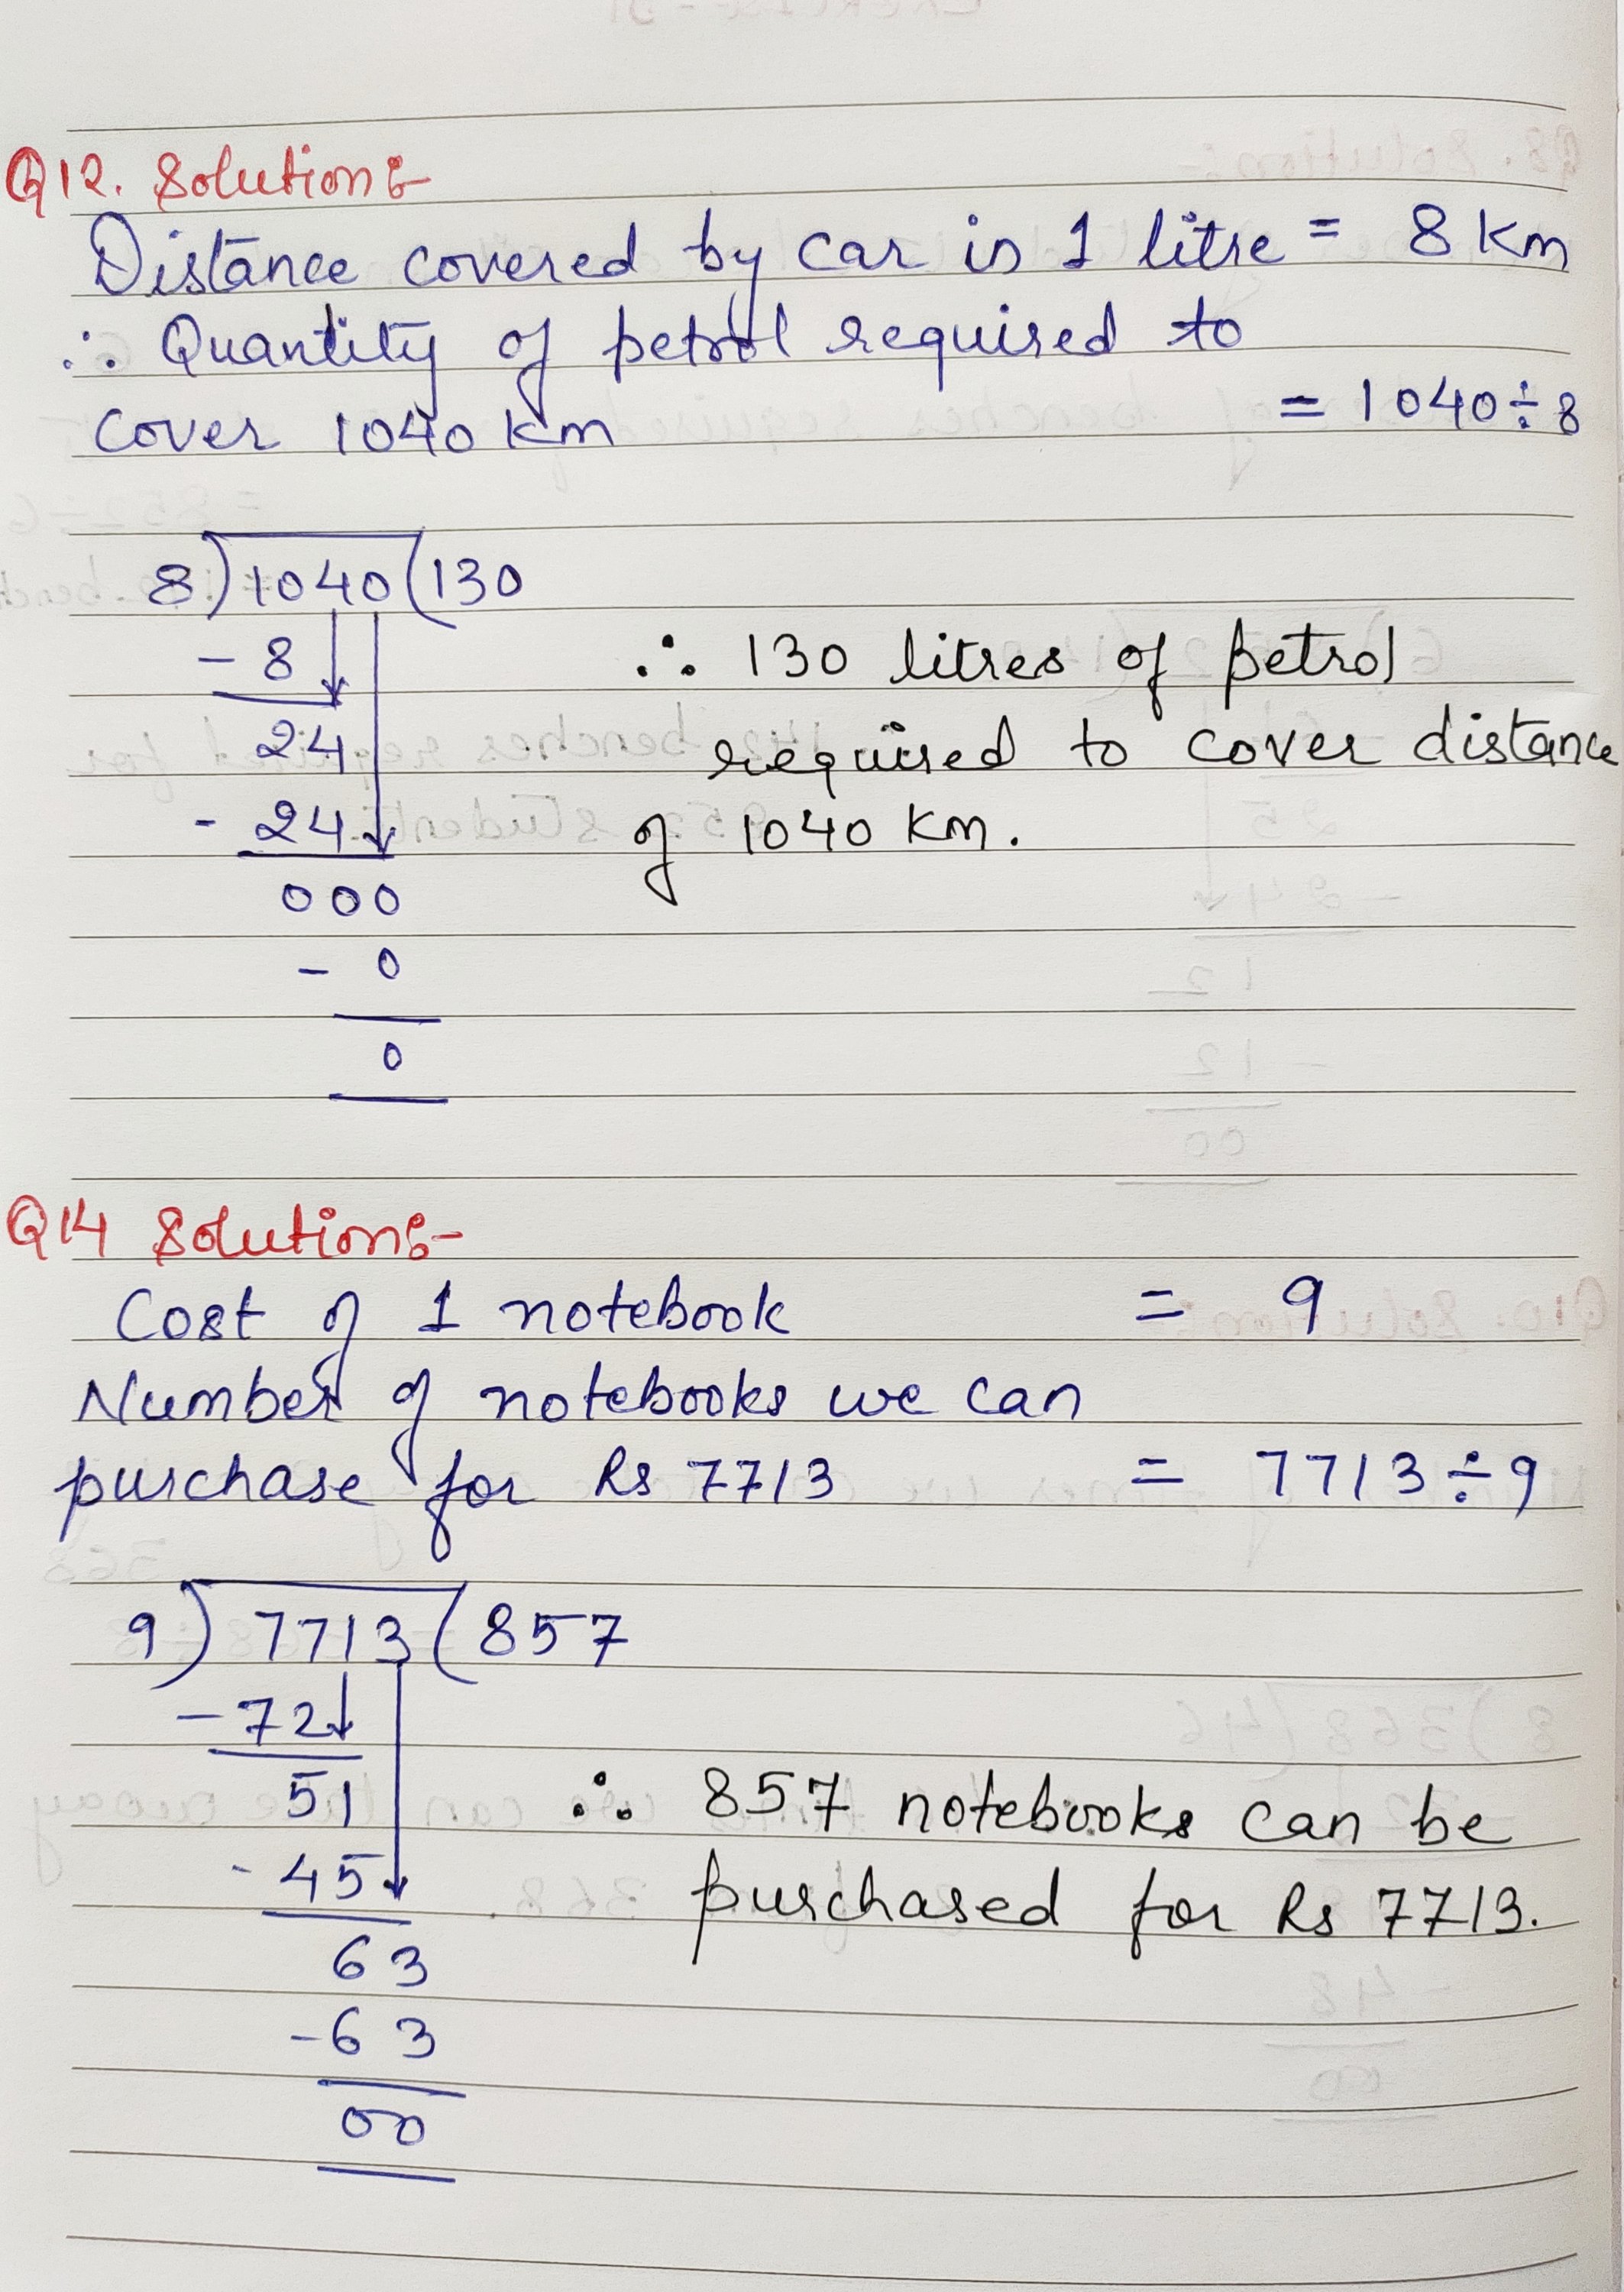 Q12. Solution:-
Distance covered by car in 1 litre = 8 km
∴ Quantity of petrol required to
cover 1040 km = 1040 ÷ 8
8)1040(130
- 8
24
- 24
000
- 0
0
∴ 130 litres of petrol
required to cover distance
of 1040 km.
Q14 Solution:-
Cost of 1 notebook = 9
Number of notebooks we can
purchase for Rs 7713 = 7713 ÷ 9
9)7713(857
-72
51
- 45
63
-63
00
∴ 857 notebooks can be
purchased for Rs 7713.